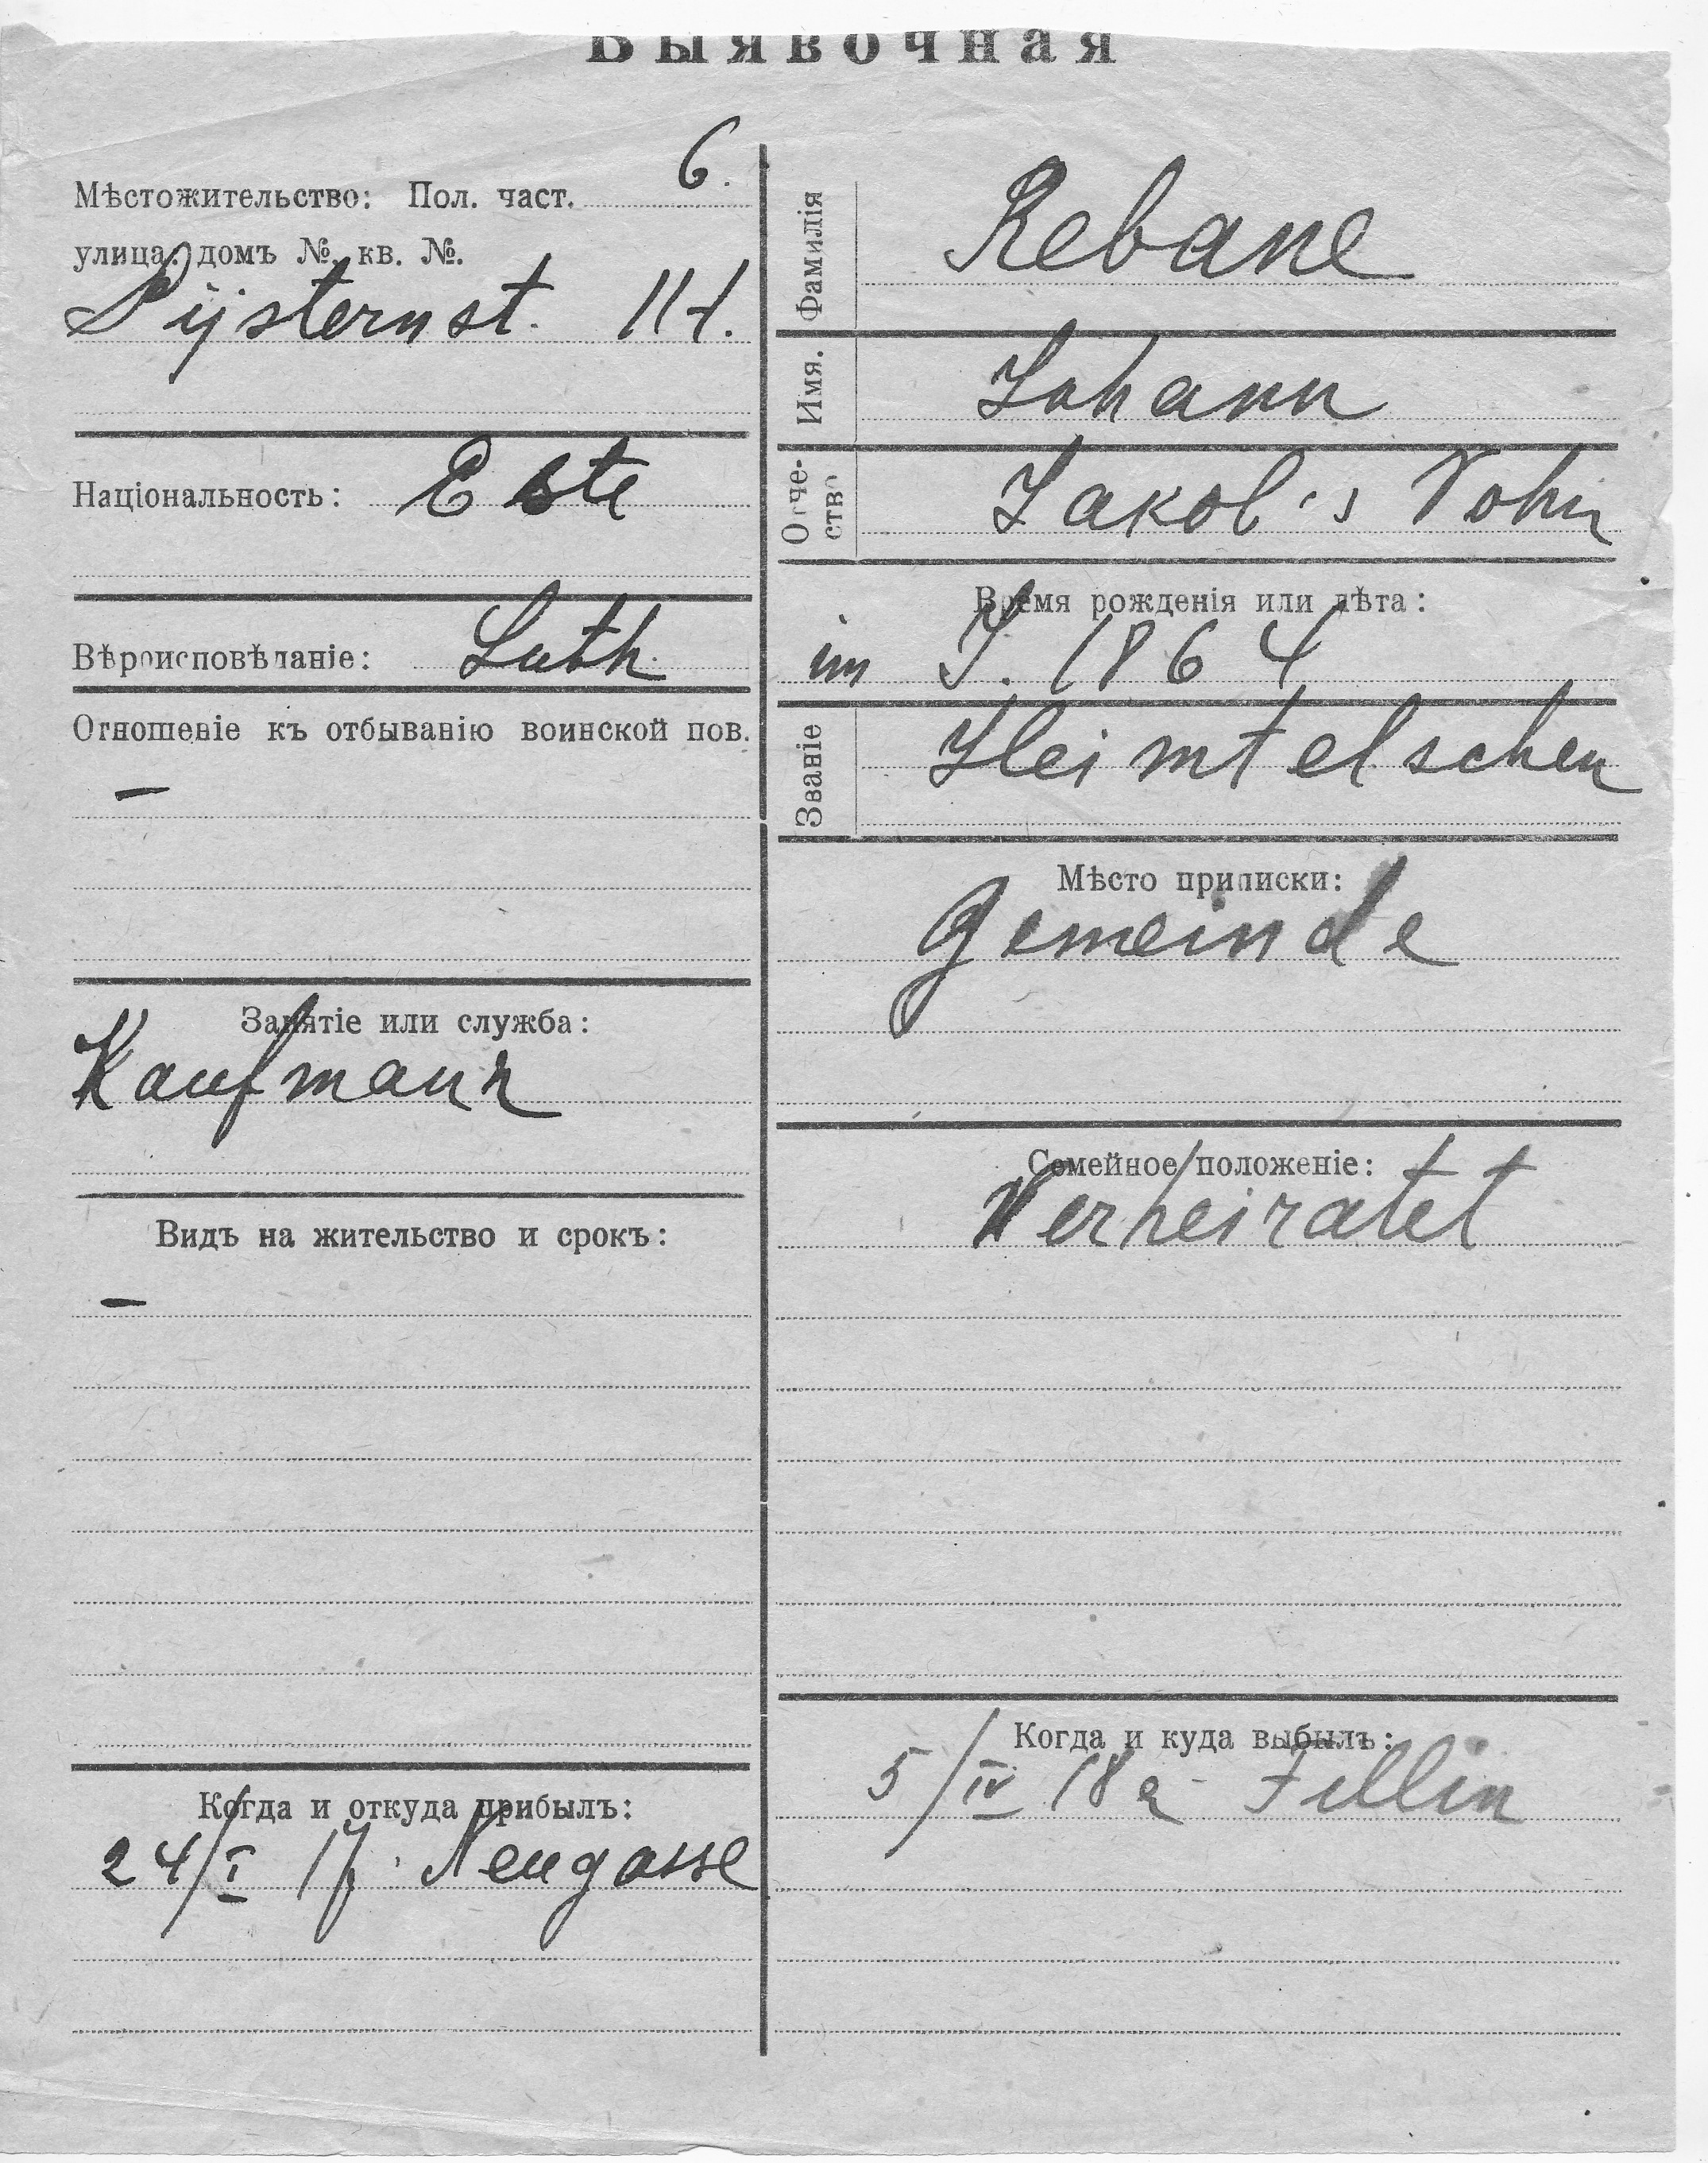 Выявочная
Мѣстожительство: Пол. част. 6.
улица: домъ №. кв. №.
114.
Національность: Este
Вѣроисповѣданіе: Luth.
Отношеніе къ отбыванію воинской пов.
—
Занятіе или служба:
Kaufmann
Видъ на жительство и срокъ:
—
Когда и откуда прибылъ:
24/I 17. Neugasse
Фамилія Rebane
Имя. Johann
Отче-
ство Jakob's Sohn
Время рожденія или лѣта:
im J. 1864
Званіе Heimtelschen
Мѣсто приписки:
Gemeinde
Семейное положеніе:
Verheiratet
Когда и куда выбылъ:
5/IV 18 Fellin